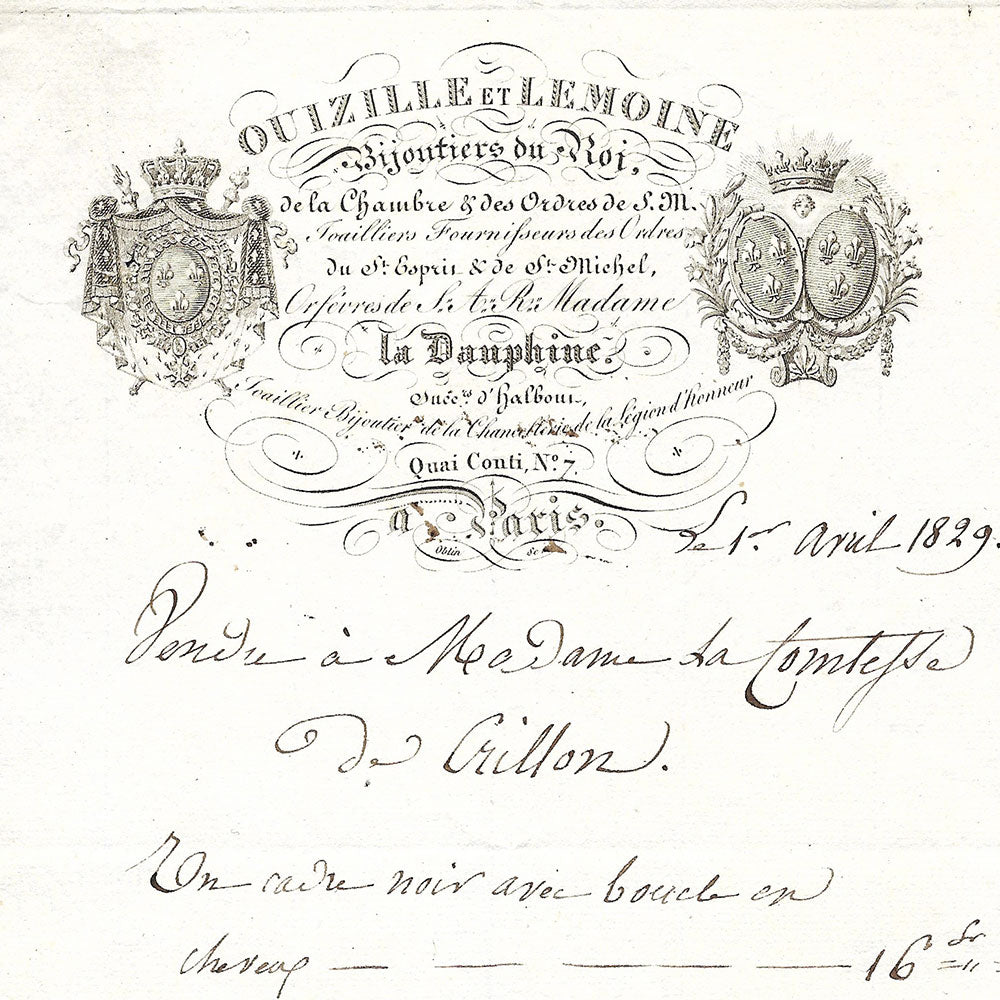 OUIZILLE ET LEMOINE
Bijoutiers du Roi,
de la Chambre & des Ordres de S. M.
Joailliers Fournisseurs des Ordres
du St. Esprit & de St. Michel,
Orfévres de S. A. R. Madame
la Dauphine.
Succ.rs d'Halbout,
Joaillier Bijoutier de la Chancellerie de la Légion d'Honneur
Quai Conti, No. 7.
a Paris.
Oblin Sc
Le 1er avril 1829.
Vendu à Madame La Comtesse
de Crillon.
Un cadre noir avec boucle en
cheveux — — — — 16 fr "